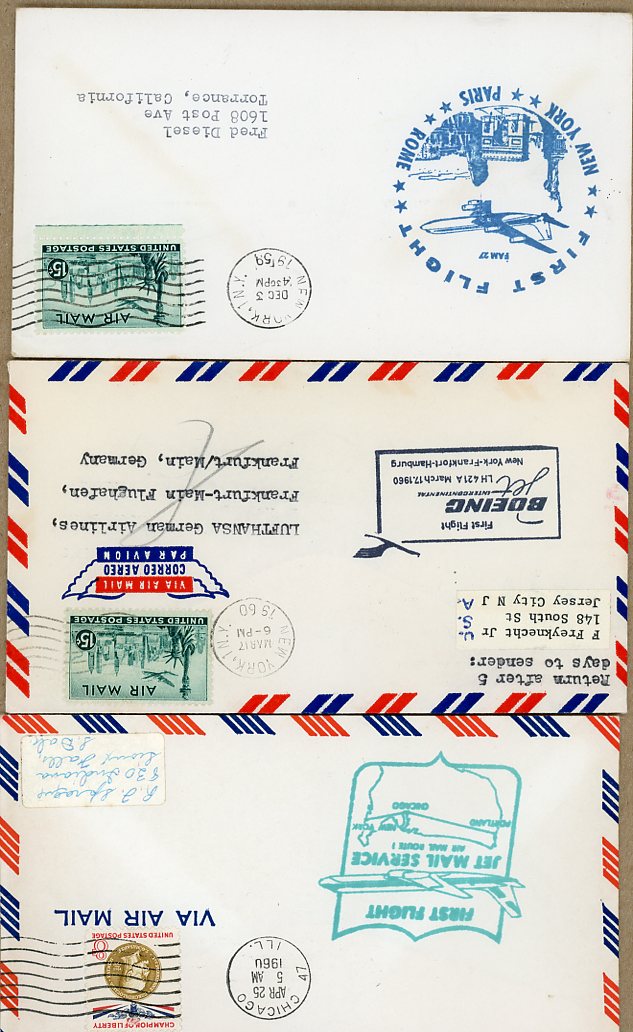 FIRST FLIGHT
JET MAIL SERVICE
AIR MAIL ROUTE 1
PORTLAND
NEW YORK
CHICAGO
CHICAGO 47
APR 25
5 AM
1960
ILL.
CHAMPION OF LIBERTY
8¢
UNITED STATES POSTAGE
VIA AIR MAIL
820 Indiana
Sioux Falls,
S. Dak.
Return after 5
days to sender:
F Freyknecht Jr
148 South St
Jersey City N J
U. S. A.
NEW YORK, N.Y.
MAR17
6-PM
1960
AIR MAIL
15¢
UNITED STATES POSTAGE
VIA AIR MAIL
CORREO AEREO
PAR AVION
First Flight
BOEING
Jet INTERCONTINENTAL
LH 421A March 17, 1960
New York-Frankfort-Hamburg
LUFTHANSA German Airlines,
Frankfurt-Main Flughafen,
Frankfurt/Main, Germany
FIRST FLIGHT
FAM 27
NEW YORK ★ PARIS ★ ROME
NEW YORK, N.Y.
DEC 3
430PM
1959
AIR MAIL
15¢
UNITED STATES POSTAGE
Fred Diesel
1608 Post Ave
Torrance, California